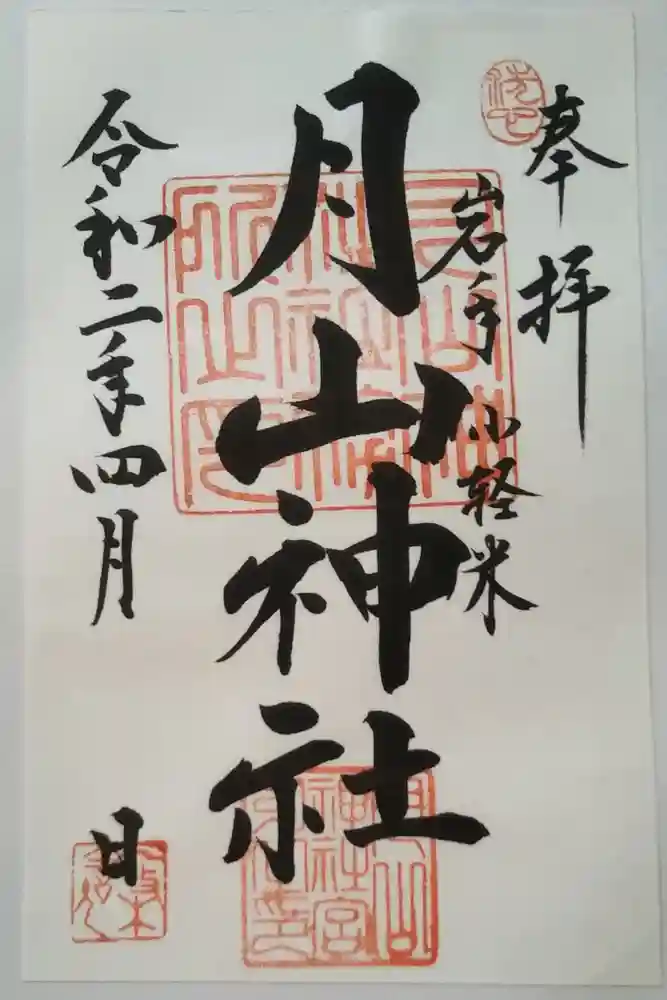 奉拝
岩手 小軽米
月山神社
令和二年四月 日